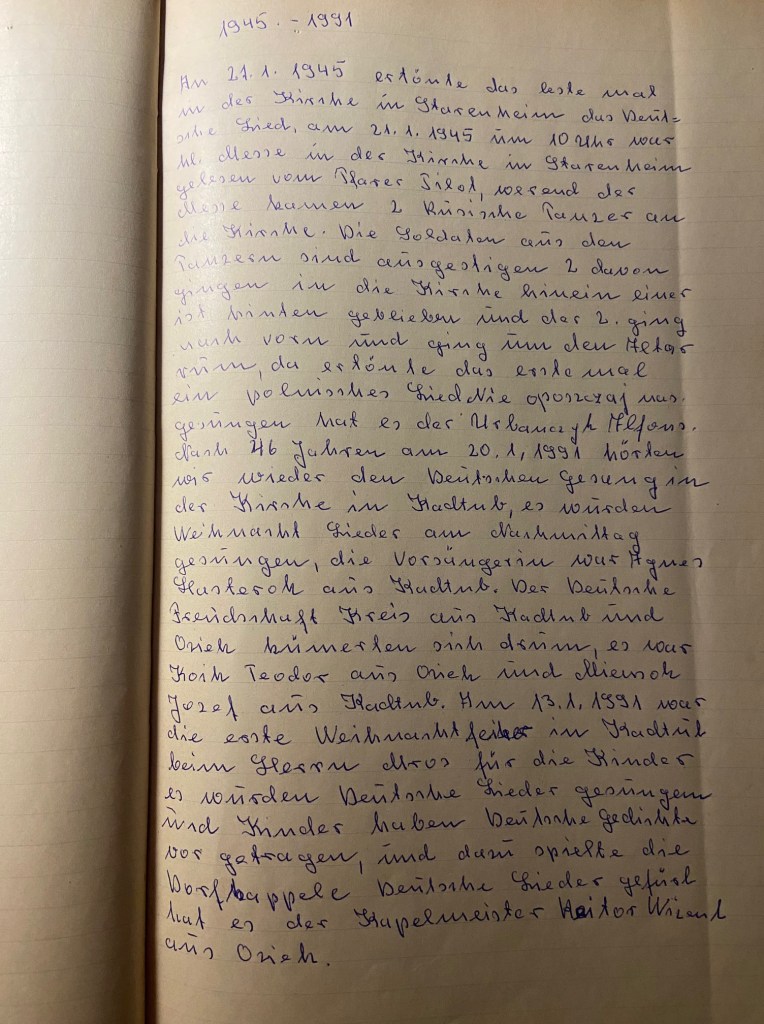 1945. - 1991
An 21.1. 1945 ertönte das leste mal
in der Kirche in Starenheim das Deut=
sche Lied, am 21.1.1945 um 10 Uhr war
hl. Messe in der Kirche in Starenheim
gelesen vom Pfarer Pilot, werend der
Messe kamen 2 Rusische Panzer an
die Kirche. Die Soldaten aus den
Panzern sind ausgestigen 2 davon
gingen in die Kirche hinein einer
ist hinten geblieben und der 2. ging
nach vorn und ging um den Altar
rum, da ertönte das erste mal
ein polnisches Lied Nie oposzczaj nas.
gesungen hat es der Urbanczyk Alfons.
Nach 46 Jahren am 20.1, 1991 hörten
wir wieder den Deutschen Gesung in
der Kirche in Kadtub, es wurden
Weihnacht Lieder am Nachmittag
gesungen, die Vorsängerin war Agnes
Hasterok aus Kadtub. Der Deutsche
Freudschaft Kreis aus Kadtub und
Osiek kümerten sich drum, es war
Koik Teodor aus Osiek und Miensok
Jozef aus Kadtub. Am 13.1, 1991 war
die erste Weihnachtfeier in Kadtub
beim Herrn Mros für die Kinder
es wurden Deutsche Lieder gesungen
und Kinder haben Deutsche Gedichte
vor getragen, und dazu spielte die
Dorfkappele Deutsche Lieder gefürt
hat es der Kapelmeister Wiktor Wizent
aus Osiek.